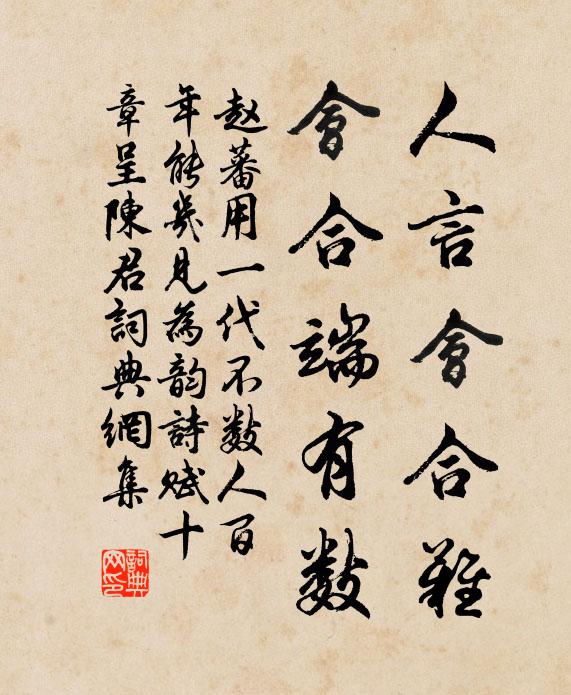 人言會合難
會合端有數
赵蕃用一代不数人百
年能幾見為韵詩賦十
章呈陳君詞典網集
詞典網印